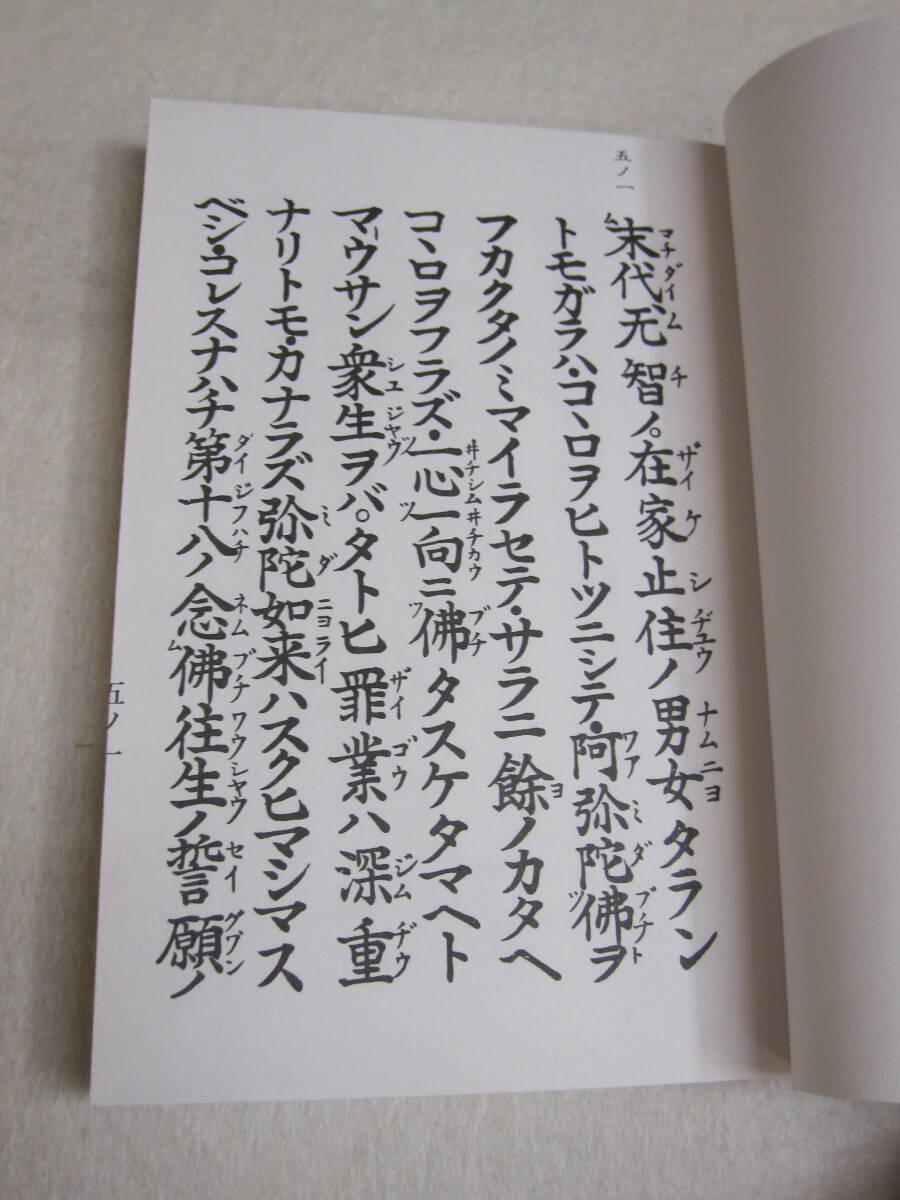 五ノ一
末代、无智ノ。在家止住ノ男女タラン
トモガラハ・コヽロヲヒトツニシテ・阿弥陀佛ヲ
フカクタノミマイラセテ・サラニ餘ノカタヘ
コヽロヲフラズ・一心一向ニ佛タスケタマヘト
マウサン衆生ヲバ。タトヒ罪業ハ深重
ナリトモ・カナラズ弥陀如来ハスクヒマシマス
ベシ・コレスナハチ第十八ノ念佛往生ノ誓願ノ
五ノ一